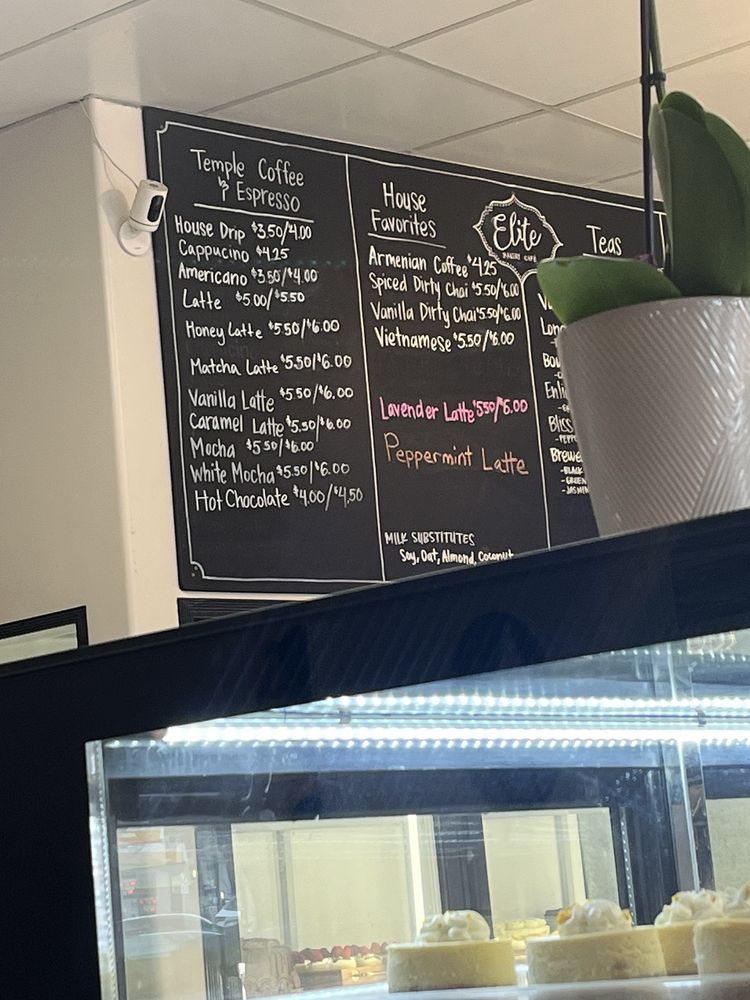 Temple Coffee
& Espresso
House Drip $3.50/$4.00
Cappucino $4.25
Americano $3.50/$4.00
Latte $5.00/$5.50
Honey Latte $5.50/$6.00
Matcha Latte $5.50/$6.00
Vanilla Latte $5.50/$6.00
Caramel Latte $5.50/$6.00
Mocha $5.50/$6.00
White Mocha $5.50/$6.00
Hot Chocolate $4.00/$4.50
House
Favorites
Armenian Coffee $4.25
Spiced Dirty Chai $5.50/$6.00
Vanilla Dirty Chai $5.50/$6.00
Vietnamese $5.50/$6.00
Lavender Latte $5.50/$6.00
Peppermint Latte
MILK SUBSTITUTES
Soy, Oat, Almond, Coconut
Elite
BAKERY CAFE
Teas
Bliss
Brewe
-BLACK
-GREEN
-JASMIN